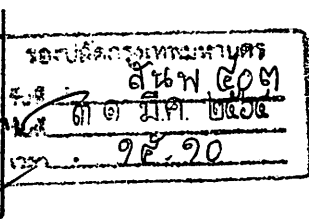 รองปลัดกรุงเทพมหานคร
รับที่ สนพ ๕๐๓
วันที่ ๓๑ มี.ค. ๒๕๖๕
เวลา ๑๕.๑๐